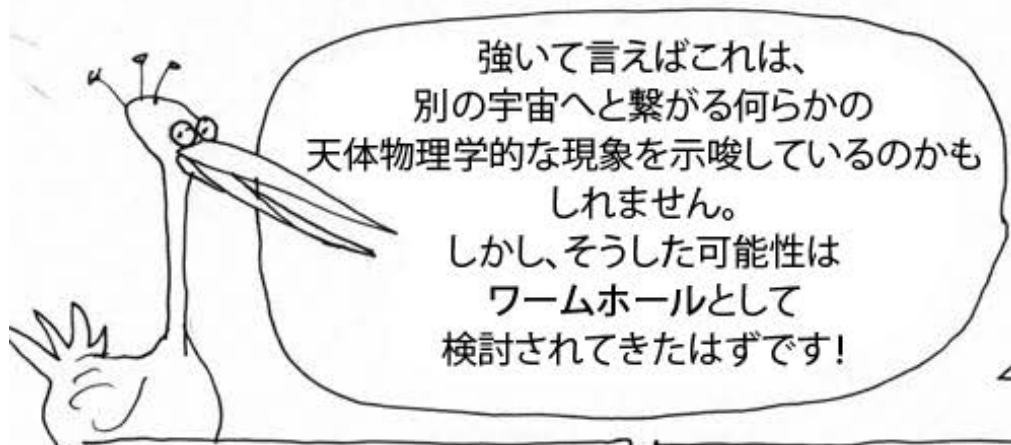 強いて言えばこれは、
別の宇宙へと繋がる何らかの
天体物理学的な現象を示唆しているのかも
しれません。
しかし、そうした可能性は
ワームホールとして
検討されてきたはずです!